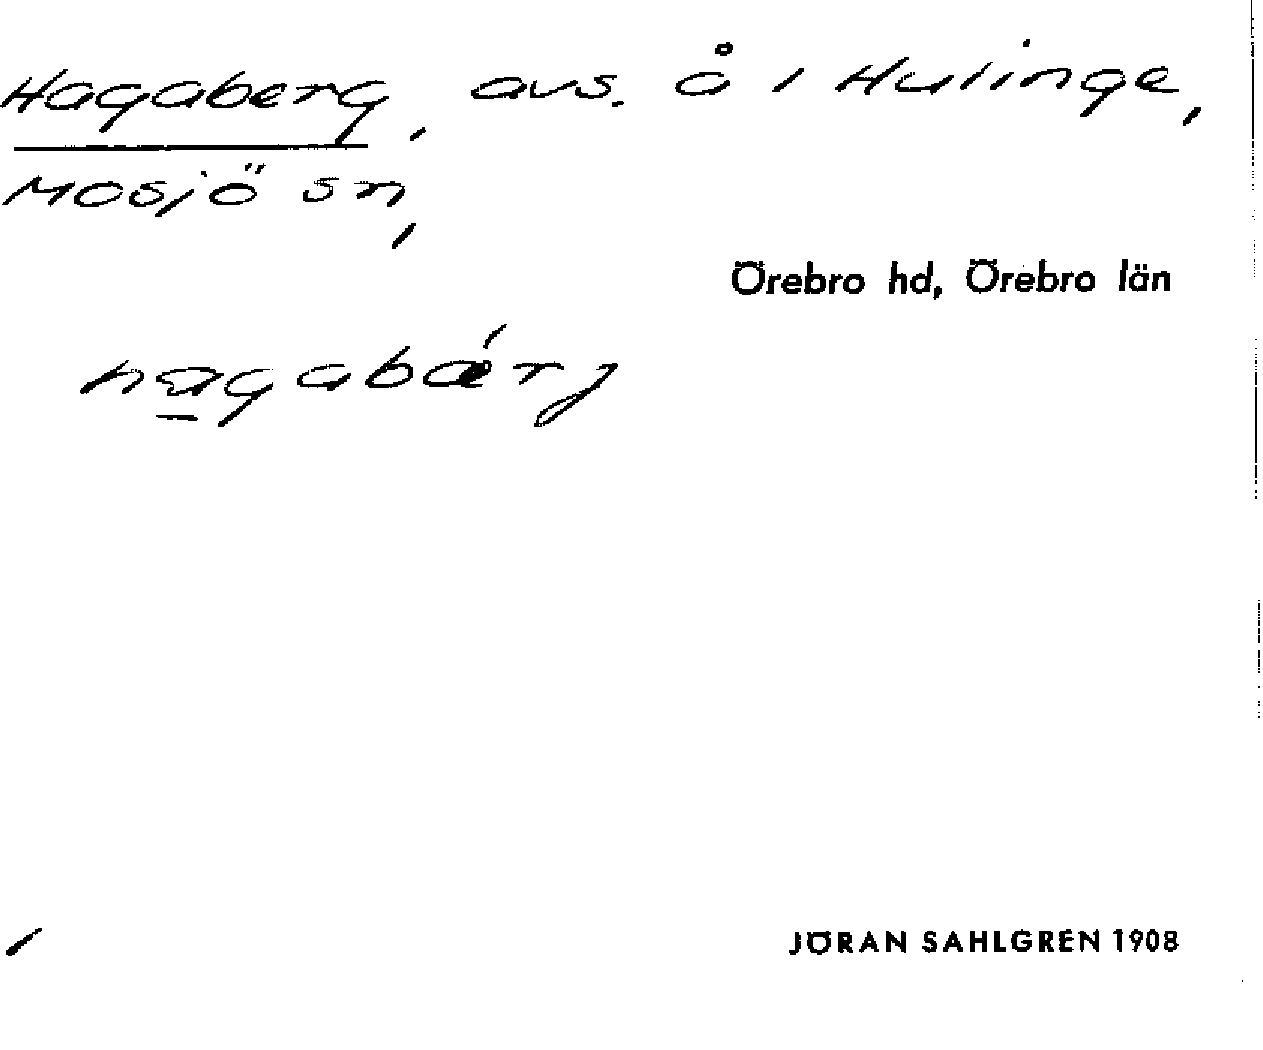 Hagaberg, avs. å i Hulinge,
Mosjö sn,
Örebro hd, Örebro län
hagabǽrj
JÖRAN SAHLGREN 1908